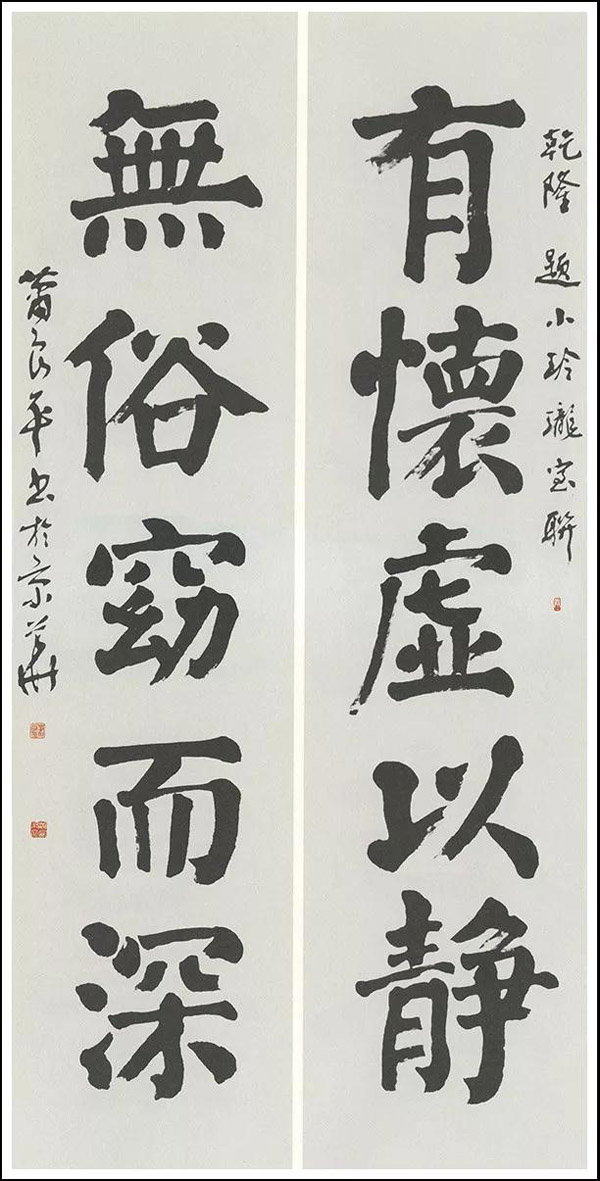 乾隆 題小玲瓏室聯
有懷虚以靜
無俗窈而深
良平书於京華